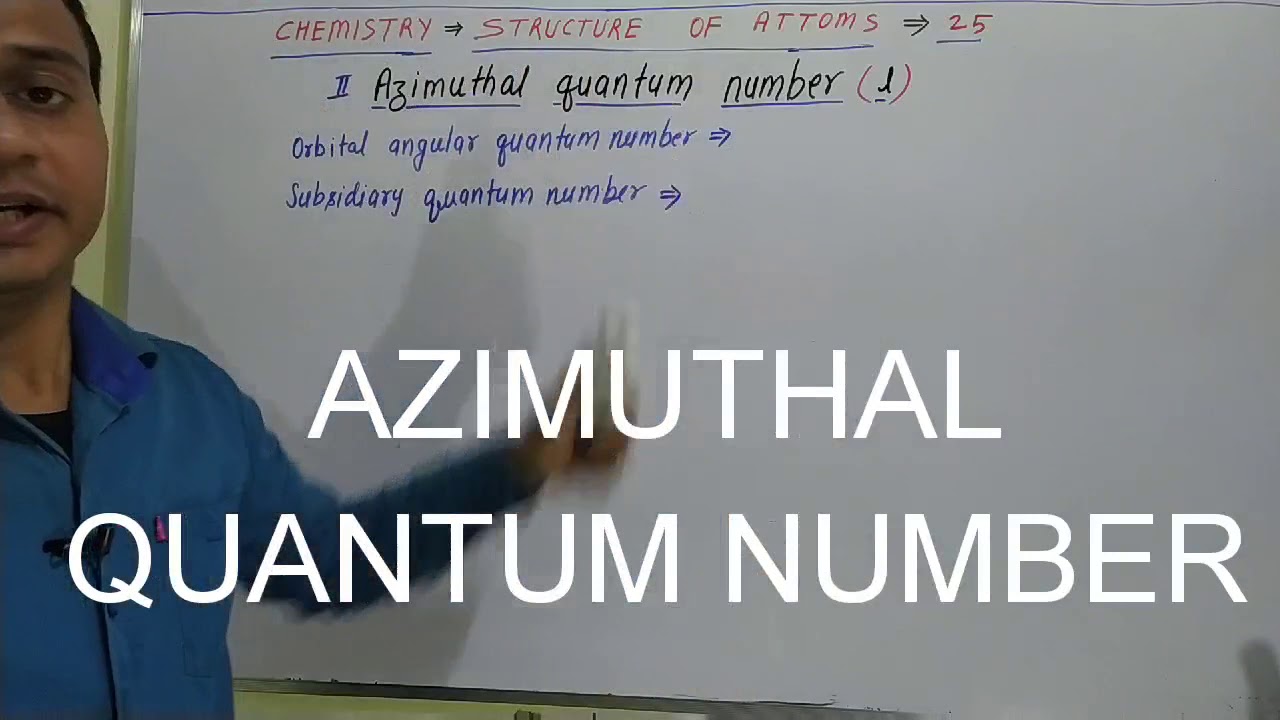 CHEMISTRY ⇒ STRUCTURE OF ATTOMS ⇒ 25
II Azimuthal quantum number (l)
Orbital angular quantum number ⇒
Subsidiary quantum number ⇒
AZIMUTHAL
QUANTUM NUMBER